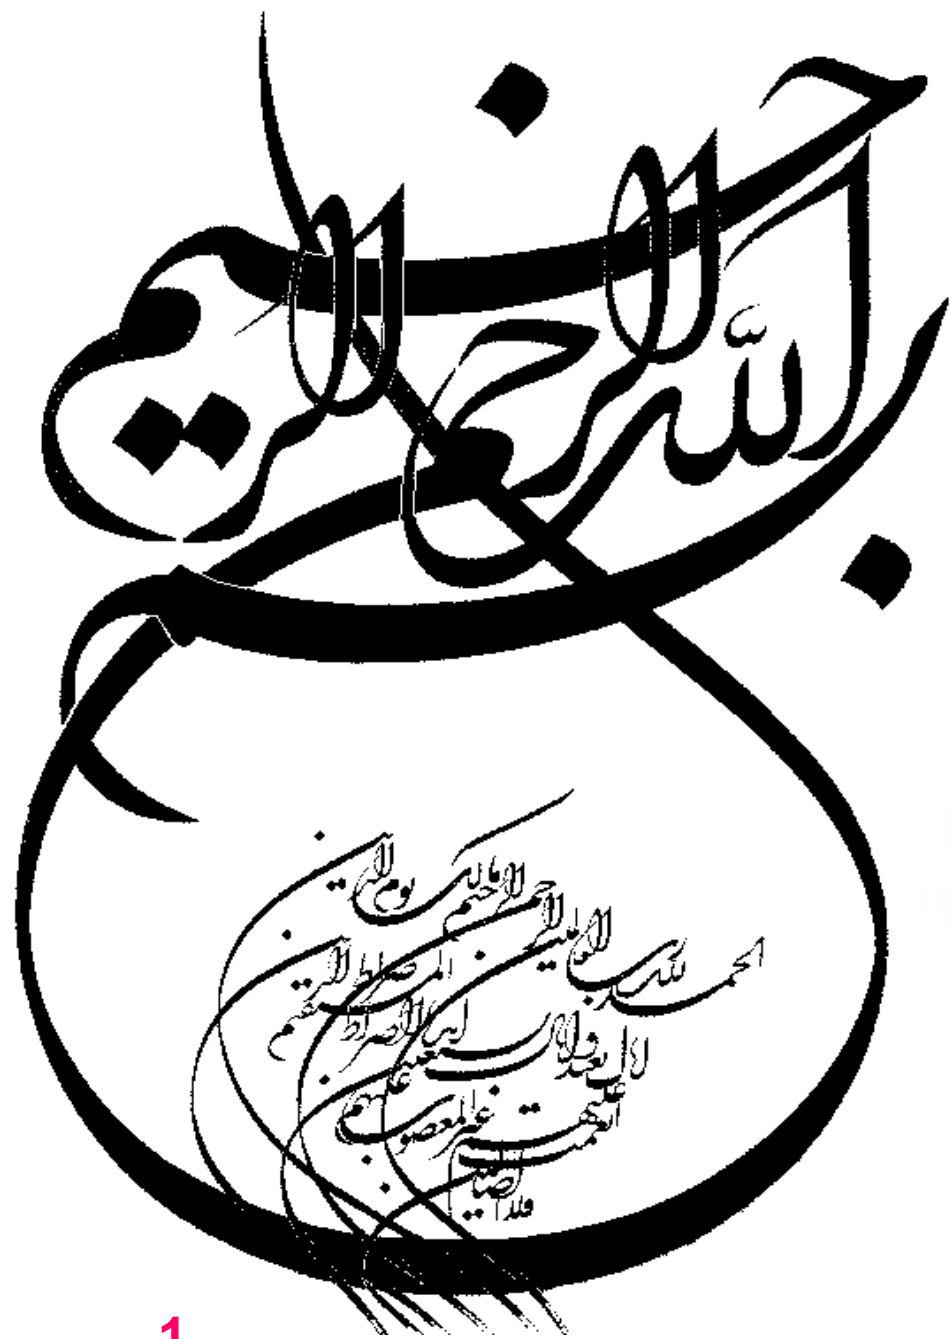 بسم الله الرحمن الرحيم
الحمد لله رب العالمين
الرحمن الرحيم مالك يوم الدين
اياك نعبد و اياك نستعين
اهدنا الصراط المستقيم صراط الذين
انعمت عليهم غير المغضوب عليهم
ولا الضالين
1